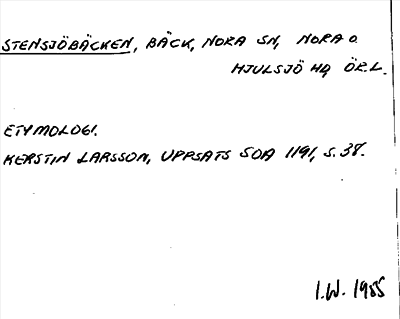 STENSJÖBÄCKEN, BÄCK, NORA SN, NORA O.
HJULSJÖ HD, ÖR.L.
ETYMOLOGI.
KERSTIN LARSSON, UPPSATS SOA 1191, S. 38.
I.W. 1955